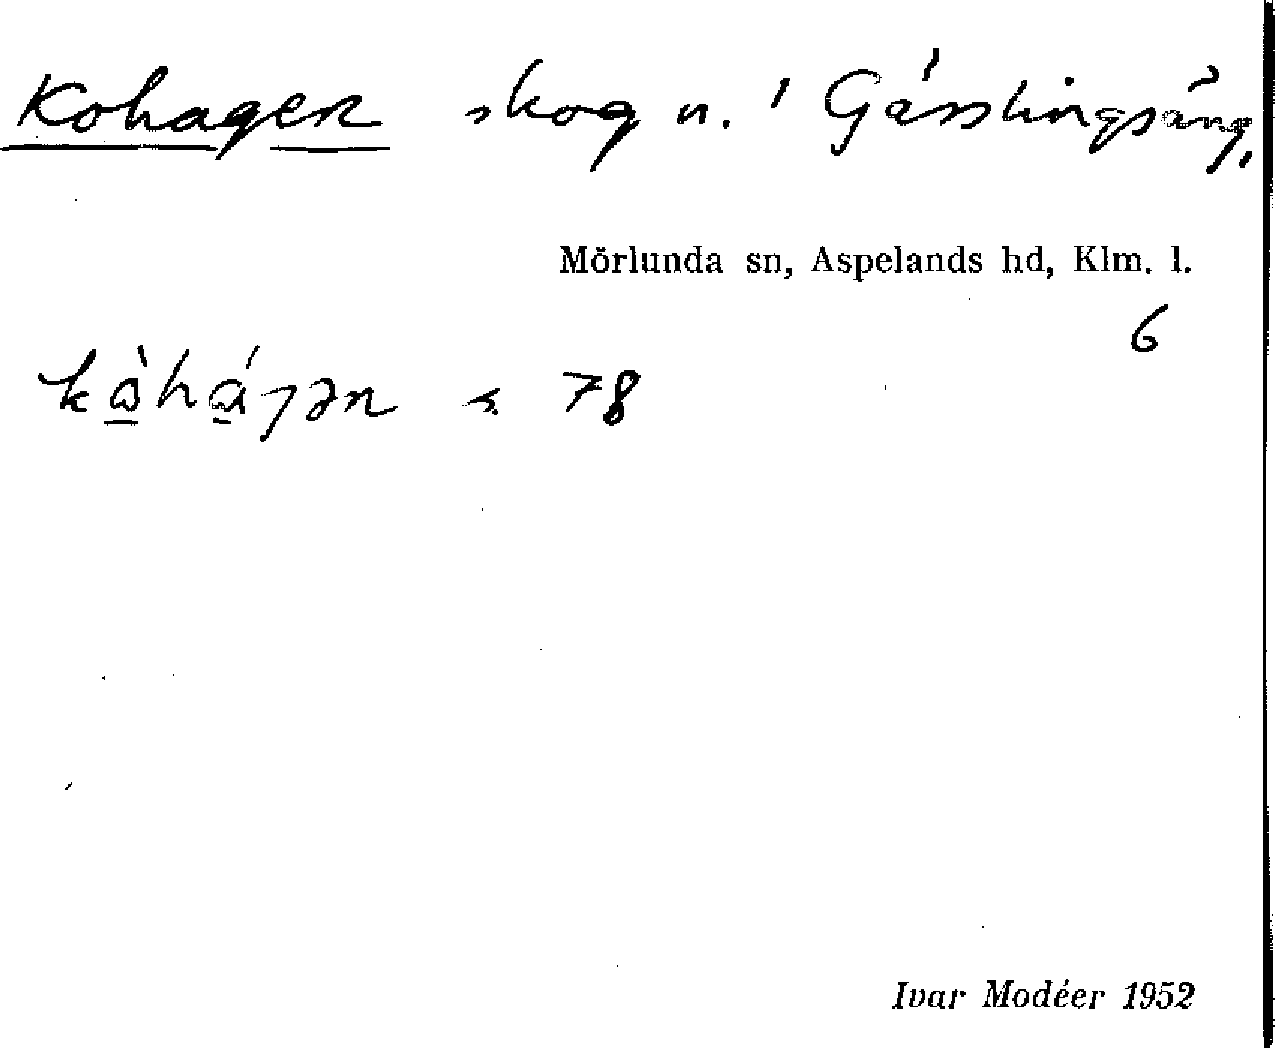 Kohagen skog n. ' Gässlingsäng,
Mörlunda sn, Aspelands hd, Klm. l.
6
78
Ivar Modéer 1952